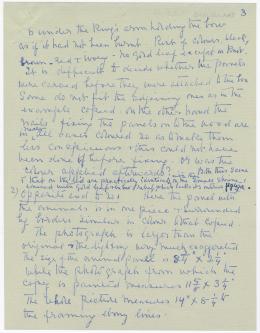 3
to under the King's arm holding the bow
as if it had not been burnt. Rest of colours black,
brown red & ivory - no gold leaf in copy on
It is difficult to decide whether the panels
were carved before they were attached to the box
Some do not fit the adjoining ones as in the
example copied on the other hand the
nails fixing the panels on to the wood are
in all cases coloured so as to make them
less conspicuous & this could not have
been done before fixing. Or was the
colour applied afterwards?
2) Opposite end to no 1 Here the panel with
the animals is in one piece & surrounded
by borders similar in colour to that copied
The photograph is larger than the
original & the lighting very much exaggerated
The size of the animal panel is
While the photograph from which the
copy is painted measures 11 5/8 x 3
The whole picture measures 14" x 8
the framing ebony lines.